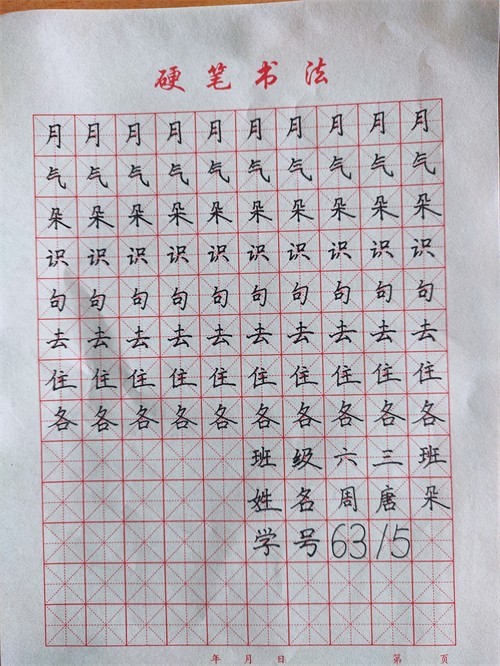 硬笔书法
月月月月月月月月月月
气气气气气气气气气气
朵朵朵朵朵朵朵朵朵朵
识识识识识识识识识识
句句句句句句句句句句
去去去去去去去去去去
住住住住住住住住住住
各各各各各各各各各各
班级六三班
姓名周唐朵
学号6315
年 月 日 第 页